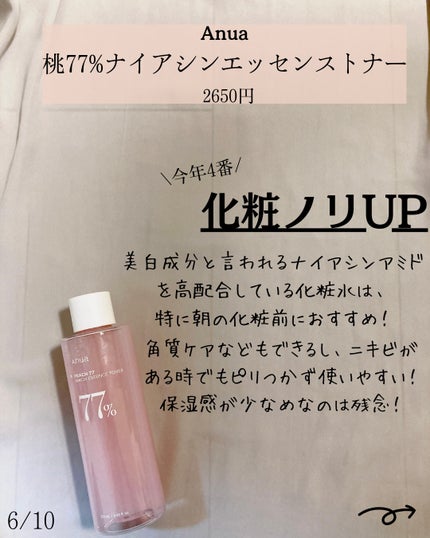 Anua
桃77%ナイアシンエッセンストナー
2650円
\今年4番/
化粧ノリUP
美白成分と言われるナイアシンアミド
を高配合している化粧水は、
特に朝の化粧前におすすめ!
角質ケアなどもできるし、ニキビが
ある時でもピリつかず使いやすい!
保湿感が少なめなのは残念!
Anua
PEACH 77
NIACIN ESSENCE TONER
77%
6/10